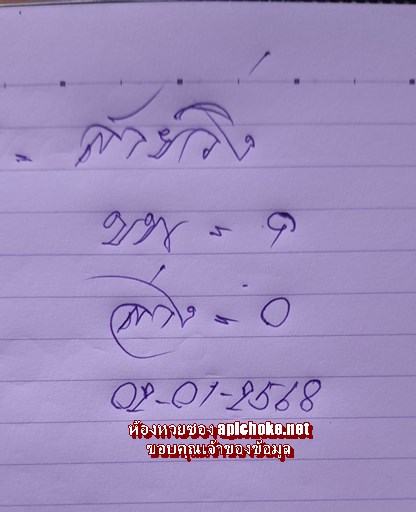 = ตัวยกวิ่ง
บน = ๑
ล่าง = 0
02-01-2568
ห้องหวยซอง apichoke.net
ขอบคุณเจ้าของข้อมูล